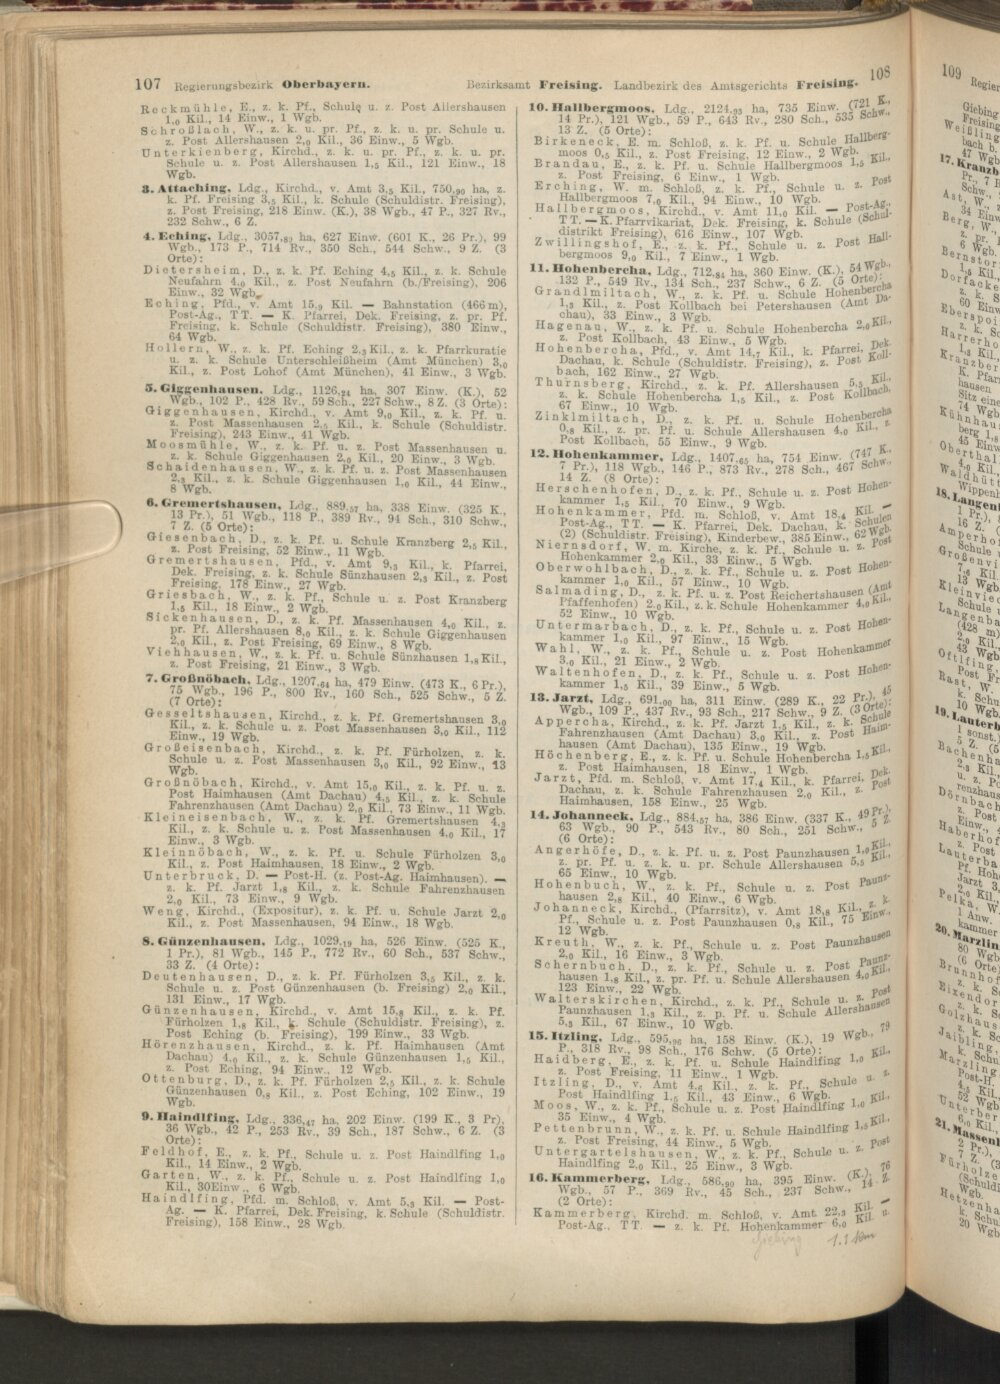 107 Regierungsbezirk Oberbayern.
Reckmühle, E., z. k. Pf., Schule u. z. Post Allershausen
1,0 Kil., 14 Einw., 1 Wgb.
Schroßlach, W., z. k. u. pr. Pf., z. k. u. pr. Schule u.
z. Post Allershausen 2,0 Kil., 36 Einw., 5 Wgb.
Unterkienberg, Kirchd., z. k. u. pr. Pf., z. k. u. pr.
Schule u. z. Post Allershausen 1,5 Kil., 121 Einw., 18
Wgb.
3. Attaching, Ldg., Kirchd., v. Amt 3,5 Kil., 750,90 ha, z.
k. Pf. Freising 3,5 Kil., k. Schule (Schuldistr. Freising),
z. Post Freising, 218 Einw. (K.), 38 Wgb., 47 P., 327 Rv.,
232 Schw., 6 Z.
4. Eching, Ldg., 3057,89 ha, 627 Einw. (601 K., 26 Pr.), 99
Wgb., 173 P., 714 Rv., 350 Sch., 544 Schw., 9 Z. (3
Orte):
Dietersheim, D., z. k. Pf. Eching 4,5 Kil., z. k. Schule
Neufahrn 4,0 Kil., z. Post Neufahrn (b./Freising), 206
Einw., 32 Wgb.
Eching, Pfd., v. Amt 15,0 Kil. — Bahnstation (466 m),
Post-Ag., TT. — K. Pfarrei, Dek. Freising, z. pr. Pf.
Freising, k. Schule (Schuldistr. Freising), 380 Einw.,
64 Wgb.
Hollern, W., z. k. Pf. Eching 2,3 Kil., z. k. Pfarrkuratie
u. z. k. Schule Unterschleißheim (Amt München) 3,0
Kil., z. Post Lohof (Amt München), 41 Einw., 3 Wgb.
5. Giggenhausen, Ldg., 1126,24 ha, 307 Einw. (K.), 52
Wgb., 102 P., 428 Rv., 59 Sch., 227 Schw., 8 Z. (3 Orte):
Giggenhausen, Kirchd., v. Amt 9,0 Kil., z. k. Pf. u.
z. Post Massenhausen 2,5 Kil., k. Schule (Schuldistr.
Freising), 243 Einw., 41 Wgb.
Moosmühle, W., z. k. Pf. u. z. Post Massenhausen u.
z. k. Schule Giggenhausen 2,0 Kil., 20 Einw., 3 Wgb.
Schaidenhausen, W., z. k. Pf. u. z. Post Massenhausen
2,3 Kil., z. k. Schule Giggenhausen 1,0 Kil., 44 Einw.,
8 Wgb.
6. Gremertshausen, Ldg., 889,57 ha, 338 Einw. (325 K.,
13 Pr.), 51 Wgb., 118 P., 389 Rv., 94 Sch., 310 Schw.,
7 Z. (5 Orte):
Giesenbach, D., z. k. Pf. u. Schule Kranzberg 2,5 Kil.,
z. Post Freising, 52 Einw., 11 Wgb.
Gremertshausen, Pfd., v. Amt 9,3 Kil., k. Pfarrei,
Dek. Freising, z. k. Schule Sünzhausen 2,3 Kil., z. Post
Freising, 178 Einw., 27 Wgb.
Griesbach, W., z. k. Pf., Schule u. z. Post Kranzberg
1,5 Kil., 18 Einw., 2 Wgb.
Sickenhausen, D., z. k. Pf. Massenhausen 4,0 Kil., z.
pr. Pf. Allershausen 8,0 Kil., z. k. Schule Giggenhausen
2,0 Kil., z. Post Freising, 69 Einw., 8 Wgb.
Viehhausen, W., z. k. Pf. u. Schule Sünzhausen 1,8 Kil.,
z. Post Freising, 21 Einw., 3 Wgb.
7. Großnöbach, Ldg., 1207,64 ha, 479 Einw. (473 K., 6 Pr.),
75 Wgb., 196 P., 800 Rv., 160 Sch., 525 Schw., 5 Z.
(7 Orte):
Gesseltshausen, Kirchd., z. k. Pf. Gremertshausen 3,0
Kil., z. k. Schule u. z. Post Massenhausen 3,0 Kil., 112
Einw., 19 Wgb.
Großeisenbach, Kirchd., z. k. Pf. Fürholzen, z. k.
Schule u. z. Post Massenhausen 3,0 Kil., 92 Einw., 13
Wgb.
Großnöbach, Kirchd., v. Amt 15,0 Kil., z. k. Pf. u. z.
Post Haimhausen (Amt Dachau) 4,5 Kil., z. k. Schule
Fahrenzhausen (Amt Dachau) 2,0 Kil., 73 Einw., 11 Wgb.
Kleineisenbach, W., z. k. Pf. Gremertshausen 4,3
Kil., z. k. Schule u. z. Post Massenhausen 4,0 Kil., 17
Einw., 3 Wgb.
Kleinnöbach, W., z. k. Pf. u. Schule Fürholzen 3,0
Kil., z. Post Haimhausen, 18 Einw., 2 Wgb.
Unterbruck, D. — Post-H. (z. Post-Ag. Haimhausen). —
z. k. Pf. Jarzt 1,8 Kil., z. k. Schule Fahrenzhausen
2,0 Kil., 73 Einw., 9 Wgb.
Weng, Kirchd., (Expositur), z. k. Pf. u. Schule Jarzt 2,0
Kil., z. Post Massenhausen, 94 Einw., 18 Wgb.
8. Günzenhausen, Ldg., 1029,19 ha, 526 Einw. (525 K.,
1 Pr.), 81 Wgb., 145 P., 772 Rv., 60 Sch., 537 Schw.,
33 Z. (4 Orte):
Deutenhausen, D., z. k. Pf. Fürholzen 3,5 Kil., z. k.
Schule u. z. Post Günzenhausen (b. Freising) 2,0 Kil.,
131 Einw., 17 Wgb.
Günzenhausen, Kirchd., v. Amt 15,8 Kil., z. k. Pf.
Fürholzen 1,8 Kil., k. Schule (Schuldistr. Freising), z.
Post Eching (b. Freising), 199 Einw., 33 Wgb.
Hörenzhausen, Kirchd., z. k. Pf. Haimhausen (Amt
Dachau) 4,0 Kil., z. k. Schule Günzenhausen 1,5 Kil.,
z. Post Eching, 94 Einw., 12 Wgb.
Ottenburg, D., z. k. Pf. Fürholzen 2,5 Kil., z. k. Schule
Günzenhausen 0,8 Kil., z. Post Eching, 102 Einw., 19
Wgb.
9. Haindlfing, Ldg., 336,47 ha, 202 Einw. (199 K., 3 Pr),
36 Wgb., 42 P., 253 Rv., 39 Sch., 187 Schw., 6 Z. (3
Orte):
Feldhof, E., z. k. Pf., Schule u. z. Post Haindlfing 1,0
Kil., 14 Einw., 2 Wgb.
Garten, W., z. k. Pf., Schule u. z. Post Haindlfing 1,0
Kil., 30 Einw., 6 Wgb.
Haindlfing, Pfd. m. Schloß, v. Amt 5,3 Kil. — Post-
Ag. — K. Pfarrei, Dek. Freising, k. Schule (Schuldistr.
Freising), 158 Einw., 28 Wgb.
Bezirksamt Freising. Landbezirk des Amtsgerichts Freising. 108
10. Hallbergmoos, Ldg., 2124,95 ha, 735 Einw. (721 K.,
14 Pr.), 121 Wgb., 59 P., 643 Rv., 280 Sch., 535 Schw.,
13 Z. (5 Orte):
Birkeneck, E. m. Schloß, z. k. Pf. u. Schule Hallberg-
moos 0,5 Kil., z. Post Freising, 12 Einw., 2 Wgb.
Brandau, E., z. k. Pf. u. Schule Hallbergmoos 1,5 Kil.,
z. Post Freising, 6 Einw., 1 Wgb.
Erching, W. m. Schloß, z. k. Pf., Schule u. z. Post
Hallbergmoos 7,0 Kil., 94 Einw., 10 Wgb.
Hallbergmoos, Kirchd., v. Amt 11,0 Kil. — Post-Ag.,
TT. — K. Pfarrvikariat, Dek. Freising, k. Schule (Schul-
distrikt Freising), 616 Einw., 107 Wgb.
Zwillingshof, E., z. k. Pf., Schule u. z. Post Hall-
bergmoos 9,0 Kil., 7 Einw., 1 Wgb.
11. Hohenbercha, Ldg., 712,84 ha, 360 Einw. (K.), 54 Wgb.,
132 P., 549 Rv., 134 Sch., 237 Schw., 6 Z. (5 Orte):
Grandlmiltach, W., z. k. Pf. u. Schule Hohenbercha
1,5 Kil., z. Post Kollbach bei Petershausen (Amt Da-
chau), 33 Einw., 3 Wgb.
Hagenau, W., z. k. Pf. u. Schule Hohenbercha 2,0 Kil.,
z. Post Kollbach, 43 Einw., 5 Wgb.
Hohenbercha, Pfd., v. Amt 14,7 Kil., k. Pfarrei, Dek.
Dachau, k. Schule (Schuldistr. Freising), z. Post Koll-
bach, 162 Einw., 27 Wgb.
Thurnsberg, Kirchd., z. k. Pf. Allershausen 5,5 Kil.,
z. k. Schule Hohenbercha 1,5 Kil., z. Post Kollbach,
67 Einw., 10 Wgb.
Zinklmiltach, D., z. k. Pf. u. Schule Hohenbercha
0,8 Kil., z. pr. Pf. u. Schule Allershausen 4,0 Kil., z.
Post Kollbach, 55 Einw., 9 Wgb.
12. Hohenkammer, Ldg., 1407,65 ha, 754 Einw. (747 K.,
7 Pr.), 118 Wgb., 146 P., 873 Rv., 278 Sch., 467 Schw.,
14 Z. (8 Orte):
Herschenhofen, D., z. k. Pf., Schule u. z. Post Hohen-
kammer 1,5 Kil., 70 Einw., 9 Wgb.
Hohenkammer, Pfd. m. Schloß, v. Amt 18,4 Kil. —
Post-Ag., TT. — K. Pfarrei, Dek. Dachau, k. Schulen
(2) (Schuldistr. Freising), Kinderbew., 385 Einw., 62 Wgb.
Niernsdorf, W. m. Kirche, z. k. Pf., Schule u. z. Post
Hohenkammer 2,0 Kil., 33 Einw., 5 Wgb.
Oberwohlbach, D., z. k. Pf., Schule u. z. Post Hohen-
kammer 1,0 Kil., 57 Einw., 10 Wgb.
Salmading, D., z. k. Pf. u. z. Post Reichertshausen (Amt
Pfaffenhofen) 2,0 Kil., z. k. Schule Hohenkammer 4,0 Kil.,
52 Einw., 10 Wgb.
Untermarbach, D., z. k. Pf., Schule u. z. Post Hohen-
kammer 1,0 Kil., 97 Einw., 15 Wgb.
Wahl, W., z. k. Pf., Schule u. z. Post Hohenkammer
3,0 Kil., 21 Einw., 2 Wgb.
Waltenhofen, D., z. k. Pf., Schule u. z. Post Hohen-
kammer 1,5 Kil., 39 Einw., 5 Wgb.
13. Jarzt, Ldg., 691,00 ha, 311 Einw. (289 K., 22 Pr.), 45
Wgb., 109 P., 437 Rv., 93 Sch., 217 Schw., 9 Z. (3 Orte):
Appercha, Kirchd., z. k. Pf. Jarzt 1,5 Kil., z. k. Schule
Fahrenzhausen (Amt Dachau) 3,0 Kil., z. Post Haim-
hausen (Amt Dachau), 135 Einw., 19 Wgb.
Höchenberg, E., z. k. Pf. u. Schule Hohenbercha 1,5 Kil.,
z. Post Haimhausen, 18 Einw., 1 Wgb.
Jarzt, Pfd. m. Schloß, v. Amt 17,4 Kil., k. Pfarrei, Dek.
Dachau, z. k. Schule Fahrenzhausen 2,0 Kil., z. Post
Haimhausen, 158 Einw., 25 Wgb.
14. Johanneck, Ldg., 884,57 ha, 386 Einw. (337 K., 49 Pr.),
63 Wgb., 90 P., 543 Rv., 80 Sch., 251 Schw., 5 Z.
(6 Orte):
Angerhöfe, D., z. k. Pf. u. z. Post Paunzhausen 1,0 Kil.,
z. pr. Pf. u. z. k. u. pr. Schule Allershausen 5,5 Kil.,
65 Einw., 10 Wgb.
Hohenbuch, W., z. k. Pf., Schule u. z. Post Paunz-
hausen 2,8 Kil., 40 Einw., 6 Wgb.
Johanneck, Kirchd., (Pfarrsitz), v. Amt 18,8 Kil., z. k.
Pf., Schule u. z. Post Paunzhausen 0,8 Kil., 75 Einw.,
12 Wgb.
Kreuth, W., z. k. Pf., Schule u. z. Post Paunzhausen
2,0 Kil., 16 Einw., 3 Wgb.
Schernbuch, D., z. k. Pf., Schule u. z. Post Paunz-
hausen 1,8 Kil., z. pr. Pf. u. Schule Allershausen 4,0 Kil.,
123 Einw., 22 Wgb.
Walterskirchen, Kirchd., z. k. Pf., Schule u. z. Post
Paunzhausen 1,3 Kil., z. p. Pf. u. Schule Allershausen
5,5 Kil., 67 Einw., 10 Wgb.
15. Itzling, Ldg., 595,96 ha, 158 Einw. (K.), 19 Wgb., 79
P., 318 Rv., 98 Sch., 176 Schw. (5 Orte):
Haidberg, E., z. k. Pf. u. Schule Haindlfing 1,0 Kil.,
z. Post Freising, 11 Einw., 1 Wgb.
Itzling, D., v. Amt 4,8 Kil., z. k. Pf., Schule u. z.
Post Haindlfing 1,5 Kil., 43 Einw., 6 Wgb.
Moos, W., z. k. Pf., Schule u. z. Post Haindlfing 1,0 Kil.,
35 Einw., 4 Wgb.
Pettenbrunn, W., z. k. Pf. u. Schule Haindlfing 1,5 Kil.,
z. Post Freising, 44 Einw., 5 Wgb.
Untergartelshausen, W., z. k. Pf., Schule u. z. Post
Haindlfing 2,0 Kil., 25 Einw., 3 Wgb.
16. Kammerberg, Ldg., 586,90 ha, 395 Einw. (K.), 76
Wgb., 57 P., 369 Rv., 45 Sch., 237 Schw., 14 Z.
(2 Orte):
Kammerberg, Kirchd. m. Schloß, v. Amt 22,3 Kil. —
Post-Ag., TT. — z. k. Pf. Hohenkammer 6,0 Kil. u.
Giebing 1.1 km
109 Regier
Giebing
Freising
Weißling
bach b.
47 Wgb
17. Kranzb
Pr., 7 P
Schw.,
Ast, W., z
34 Einw
Berg, W.,
z. pr.
6 Wgb.
Bernstor
1,5 Kil.
Dorfacke
z. k. S
60 Einw
Eberspoi
z. k. Sc
Harrerho
1,8 Kil.,
Kranzber
K. Pfar
hausen
Sitz eine
74 Wgb
Kühnhau
berg 1,8
45 Einw
Oberthal
4,0 Kil.,
Waldhütt
Wippenh
18. Langen
1 Pr.),
16 Z.
Amperho
Schule
Großenvi
7,5 Kil.
13 Wgb
Kleinvie
Schule
Langenba
(428 m)
2,0 Kil.
43 Wgb
Oftlfing,
Post Fr
Rast, W.
k. Schu
10 Wgb
19. Lauterb
1 sonst.
5 Z. (5
Bachenha
2,3 Kil.
u. z. Po
renzhaus
Dörnbach
z. Post
Einw.,
Haberhof
z. Post
Lauterba
Pf. Hoh
Jarzt 3,
2,0 Kil.,
Pelka, W.
1 Anw.
kammer
20. Marzlin
80 Wgb
(6 Orte
Brunnhof
z. k. S
Eixendor
z. k. S
Golzhaus
z. k. S
Jaibling,
k. Schu
Marzling
Post-H.
4,5 Kil.
52 Wgb
Unterber
6,0 Kil.
21. Massenh
2 Pr.),
7 Z. (3
Fürholze
(Schuldi
Wgb.
Hetzenha
k. Schu
20 Wgb